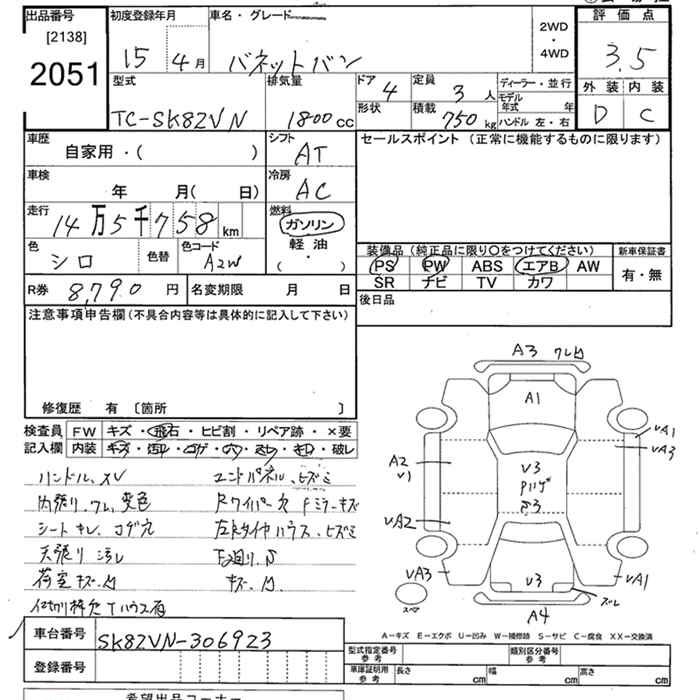 出品番号
[2138]
2051
初度登録年月
15年 4月
車名・グレード
バネットバン
2WD
・
4WD
評価点
3.5
外装 内装
D C
型式
TC-SK82VN
排気量
1800cc
ドア
4
形状
定員
3人
積載
750kg
ディーラー・並行
モデル年式 年
ハンドル 左・右
車歴
自家用・( )
シフト
AT
セールスポイント (正常に機能するものに限ります)
車検
年 月( 日)
冷房
AC
走行
14万5千758km
燃料
ガソリン
軽油
・
( )
色
シロ
色替
色コード
A2W
装備品(純正品に限り○をつけてください)
PS PW ABS エアB AW
SR ナビ TV カワ
新車保証書
有・無
R券 8,790円
名変期限 月 日
後日品
注意事項申告欄(不具合内容等は具体的に記入して下さい)
修復歴 有〔箇所 〕
検査員記入欄
FW キズ・飛石・ヒビ割・リペア跡・×要
内装 キズ・汚れ・コゲ・穴・スレ・キレ・破レ
ハンドル、スレ
内張り、ワレ、変色
シートキレ、コゲ穴
天張り汚レ
荷室キズ、
エンドパネル、ヒズミ
Rワイパー欠 Fミラーキズ
左右タイヤハウス、ヒズミ
下廻り、S
キズ、
A3 ワレ
A1
VA1
VA3
A2
V1
V3
VA2
VA3
V3
VA1
A4
スペア
ズレ
A-キズ E-エクボ U-凹み W-補修跡 S-サビ C-腐食 XX-交換済
車台番号
SK82VN-306923
登録番号
型式指定番号
参考
類別区分番号
参考
車庫証明用
参考
長さ cm
幅 cm
高さ cm
希望出品コーナー